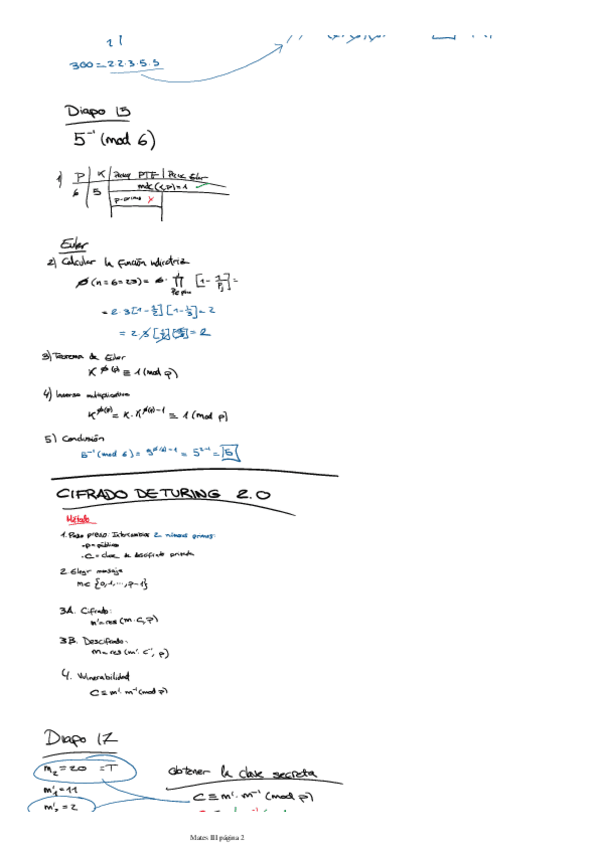 300 = 2·2·3·5·5
Diapo 15
5⁻¹ (mod 6)
1) P K
6 5 mdc(k,p)=1 ✓
p-primo ✗
Euler
2) Calcular la función indicatriz
ø(n=6=2·3) = 6· ∏ [1 - 1/Pj] =
= 2·3[1-1/2][1-1/3] = 2
= 2
3) Teorema de Euler
K^ø(p) ≡ 1 (mod p)
4) Inverso multiplicativo
K^ø(p) = K·K^ø(p)-1 ≡ 1 (mod p)
5) Conclusión
5⁻¹ (mod 6) = 5^ø(6)-1 = 5²⁻¹ = 5
CIFRADO DE TURING 2.0
Método
1. Paso previo: Intercambiar 2 números primos:
-p=público
-C=clave de descifrado privada
2. Elegir mensaje
m ∈ {0,1,...,p-1}
3A. Cifrado:
m'=res(m·C,p)
3B. Descifrado:
m=res(m'·C⁻¹,p)
4. Vulnerabilidad
C≡m'·m⁻¹(mod p)
Diapo 17
m₂=20 =T
obtener la clave secreta
m'₁=11
C≡m'·m⁻¹(mod p)
m'₂=2
Mates III página 2